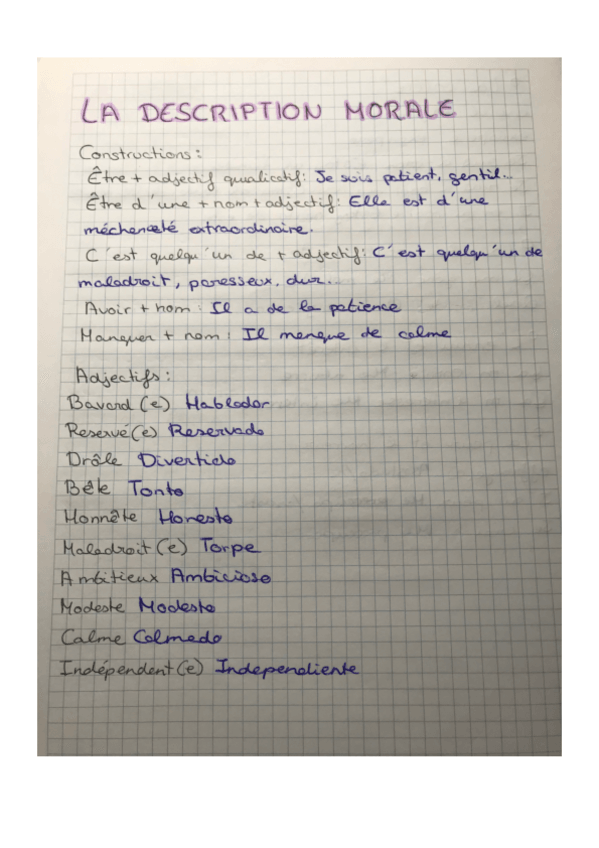 LA DESCRIPTION MORALE
Constructions :
Être + adjectif qualicatif: Je suis patient, gentil...
Être d'une + nom + adjectif: Elle est d'une
méchanceté extraordinaire.
C'est quelqu'un de + adjectif: C'est quelqu'un de
maladroit, paresseux, dur...
Avoir + nom : Il a de la patience
Manquer + nom : Il manque de calme
Adjectifs :
Bavard (e) Hablador
Reservé(e) Reservado
Drôle Divertido
Bête Tonto
Honnête Honesto
Maladroit (e) Torpe
Ambitieux Ambicioso
Modeste Modesto
Calme Calmado
Indépendent (e) Independiente